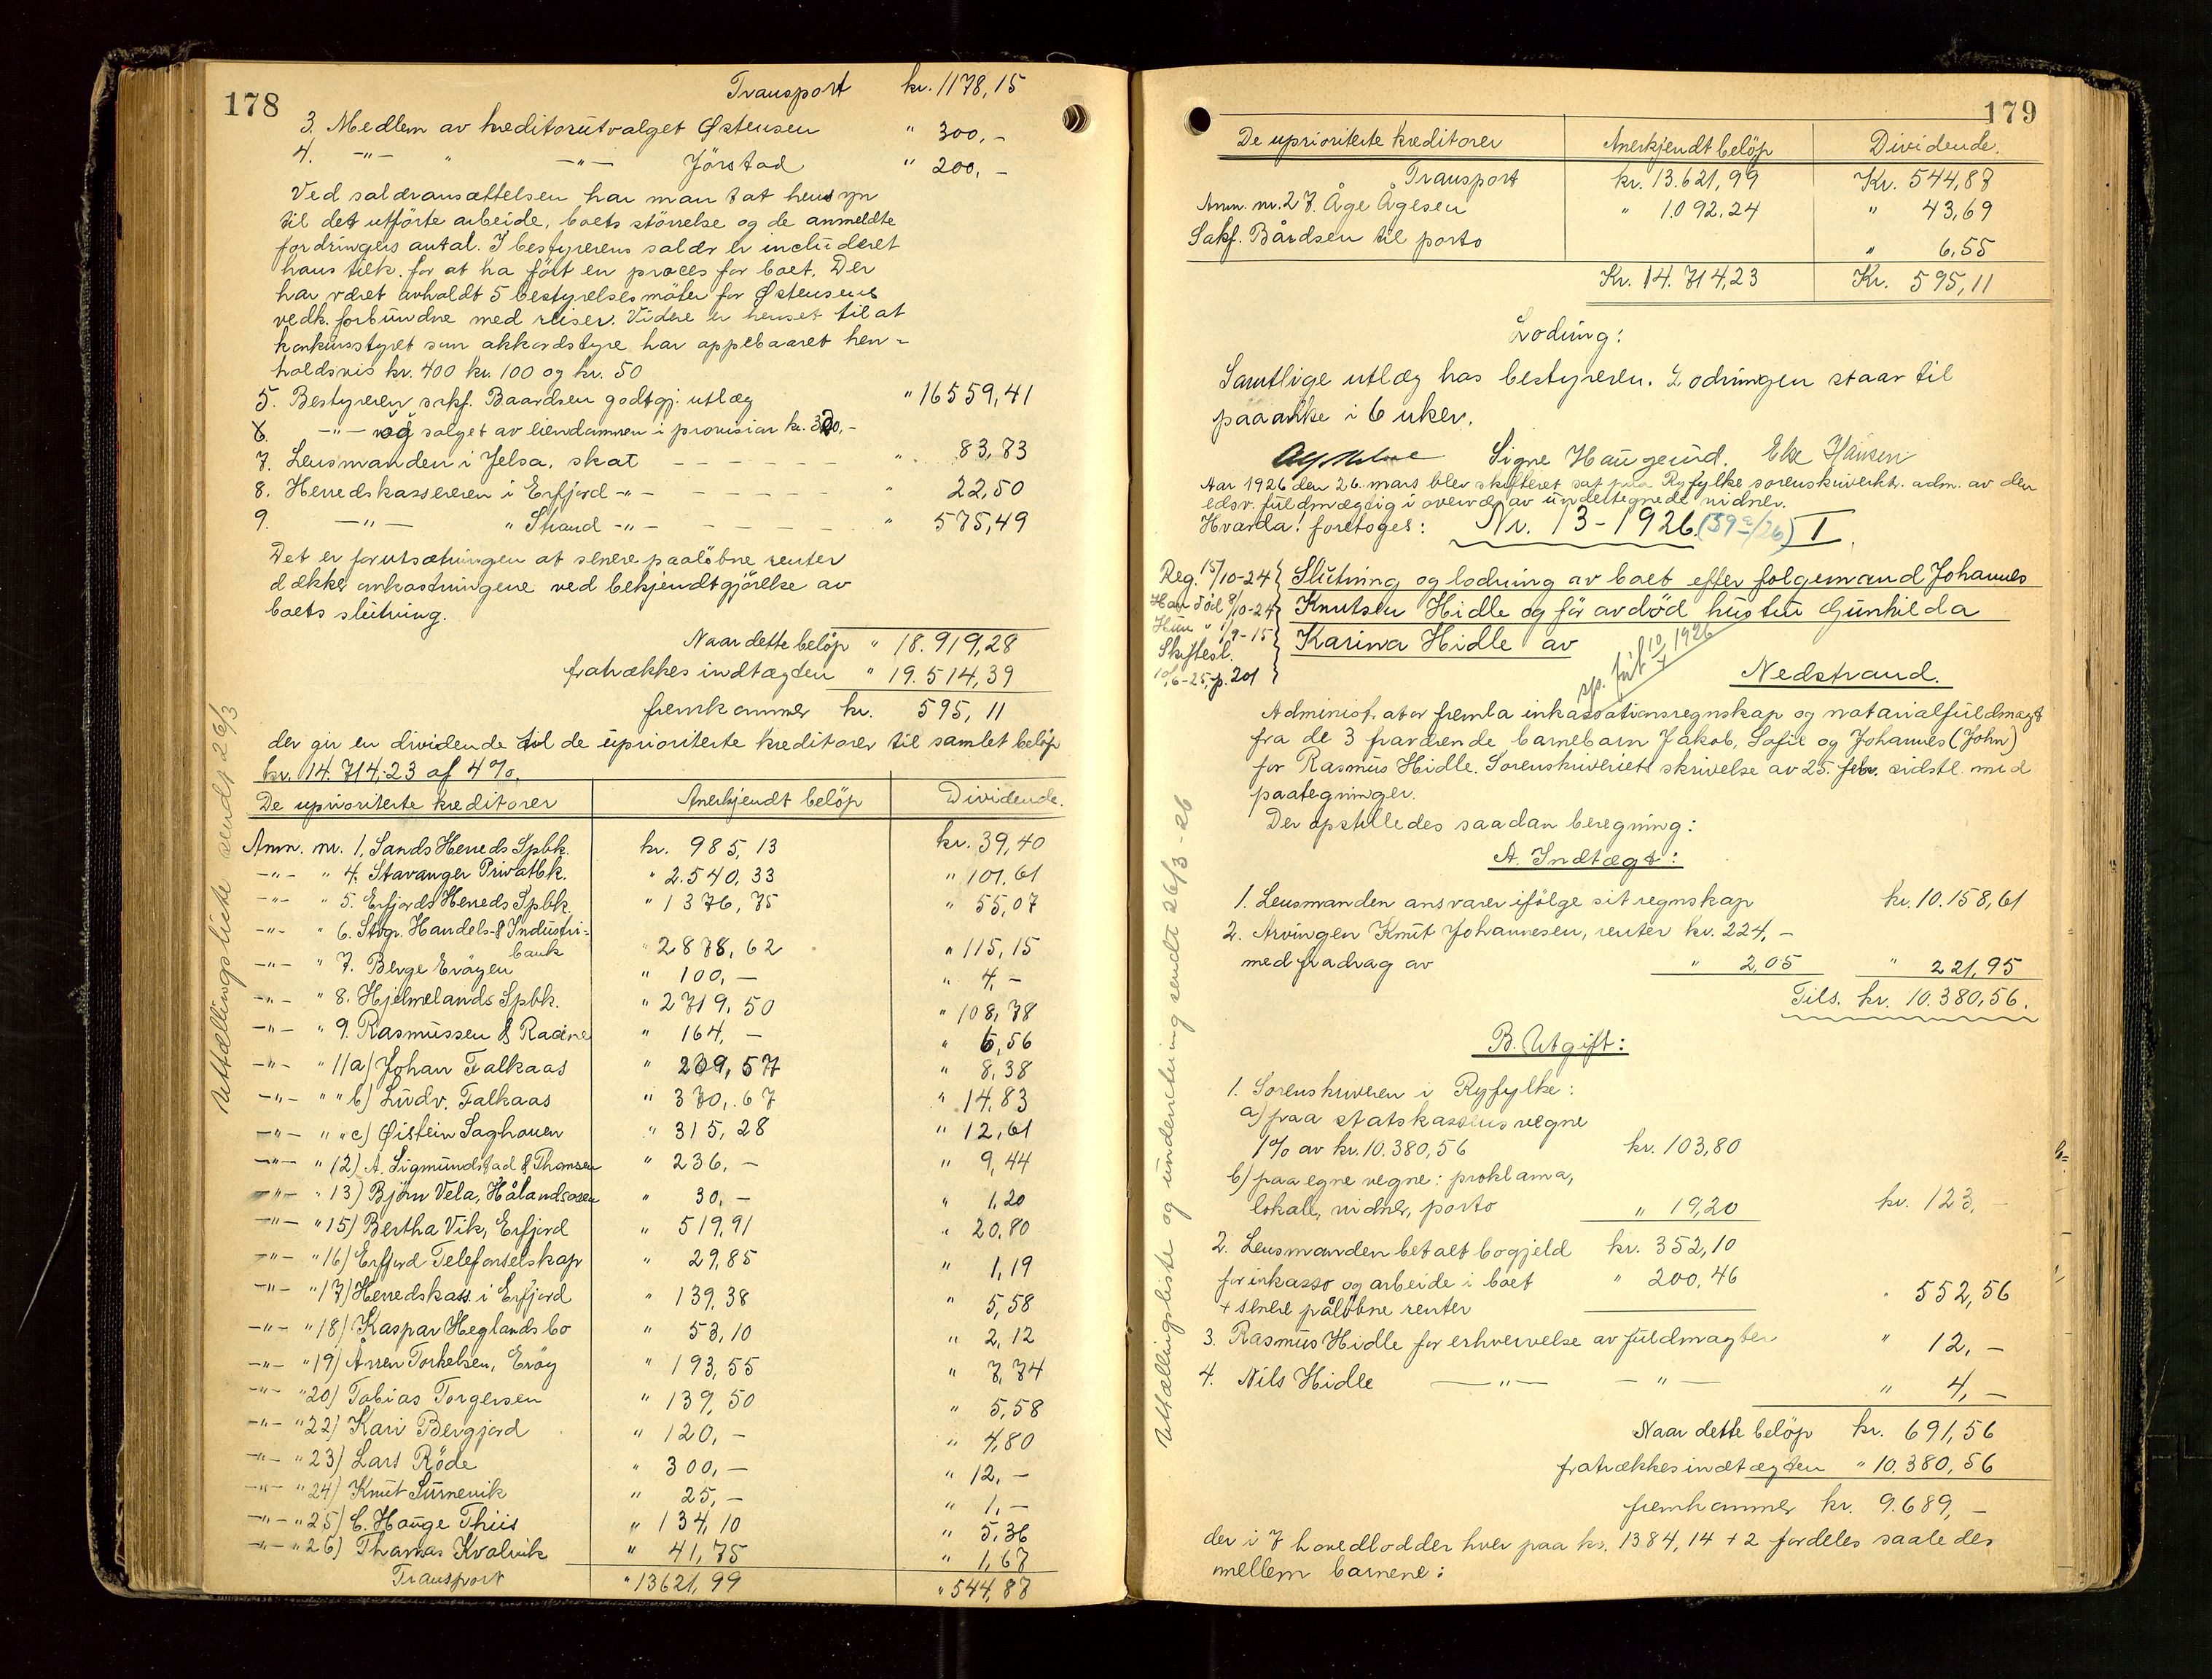 178
Transport kr. 1178,15
3. Medlem av kreditorutvalget Østensen " 300,-
4. -"- " -"- Jörstad " 200,-
Ved salæransættelsen har man tat hensyn
til det utförte arbeide, boets störrelse og de anmeldte
fordringers antal. I bestyrerens salær er includeret
hans tilk. for at ha fört en proces for boet. Der
har været avholdt 5 bestyrelsesmöter for Østensens
vedk. forbundne med reiser. Videre er henset til at
konkursstyret som akkordstyre har oppebaaret hen-
holdsvis kr. 400 kr. 100 og kr. 50
5. Bestyreren sakf. Baardsen godtgj. utlæg " 16559,41
6. -"- salget av eiendommen i provision kr. 320,-
7. Lensmanden i Jelsa, skat - - - - - - " 83,73
8. Herredskassereren i Erfjord -"- - - - - - " 22,50
9. -"- " Strand -"- - - - - - " 575,49
Det er forutsætningen at senere paalöbne renter
dækker omkostningene ved bekjendtgjörelse av
boets slutning.
Naar dette belöp " 18.919,28
fratrækkes indtægten " 19.514,39
fremkommer kr. 595,11
der gir en dividende til de uprioriterte kreditorer til samlet belöp
kr. 14.714,23 af 4%.
De uprioriterte kreditorer Anerkjendt belöp Dividende.
Anm. nr. 1. Sands Herreds Spbk. kr. 985,13 kr. 39,40
-"- " 4. Stavanger Privatbk. " 2.540,33 " 101,61
-"- " 5. Erfjords Herreds Spbk. " 1376,75 " 55,07
-"- " 6. Stvgr. Handels- & Industri-
bank " 2878,62 " 115,15
-"- " 7. Berge Eröyen " 100,- " 4,-
-"- " 8. Hjelmelands Spbk. " 2719,50 " 108,78
-"- " 9. Rasmussen & Racine " 164,- " 6,56
-"- " 11a) Johan Falkaas " 209,57 " 8,38
-"- " " b) Ludv. Falkaas " 370,67 " 14,83
-"- " " c) Øistein Saghauen " 315,28 " 12,61
-"- " 12) A. Sigmundstad & Thomsen " 236,- " 9,44
-"- " 13) Björn Vela, Hålandsosen " 30,- " 1,20
-"- " 15) Bertha Vik, Erfjord " 519,91 " 20,80
-"- " 16) Erfjord Telefonselskap " 29,85 " 1,19
-"- " 17) Herredskass. i Erfjord " 139,38 " 5,58
-"- " 18) Kaspar Heglands bo " 53,10 " 2,12
-"- " 19) Torkelsen, Eröy " 193,55 " 7,74
-"- " 20) Tobias Torgersen " 139,50 " 5,58
-"- " 22) Kari Bergjord " 120,- " 4,80
-"- " 23) Lars Röde " 300,- " 12,-
-"- " 24) Knut Surnevik " 25,- " 1,-
-"- " 25) C. Hauge Thiis " 134,10 " 5,36
-"- " 26) Thomas Kvalvik " 41,75 " 1,67
Transport " 13621,99 " 544,87
Uttællingsliste sendt 26/3
179
De uprioriterte kreditorer Anerkjendt belöp Dividende.
Transport kr. 13.621,99 Kr. 544,87
Anm. nr. 27. Åge Ågesen " 1.092,24 " 43,69
Sakf. Bårdsen til porto " 6,55
Kr. 14.714,23 Kr. 595,11
Lodning:
Samtlige utlæg hos bestyreren. Lodningen staar til
paaanke i 6 uker.
Signe Haugerud. Else Hansen
Aar 1926 den 26. mars blev skifteret sat paa Ryfylke sorenskriverkt. adm. av den
edsv. fuldmægtig i overvær av undertegnede vidner.
Hvorda: foretoges: Nr. 13-1926 (39a/26) I.
Reg. 15/10-24 Slutning og lodning av boet efter folgemand Johannes
Han död 8/10-24 Knutsen Hidle og för avdöd hustru Gunhilda
Hun " 1/9-15 Karina Hidle av
Skiftesl.
10/6-25, p. 201
sp. fut 10/7 1926
Nedstrand.
Administrator fremla inkassationsregnskap og notarialfuldmagt
fra de 3 fraværende barnebarn Jakob, Sofie og Johannes (John)
for Rasmus Hidle. Sorenskriveriets skrivelse av 25. febr. sidstl. med
paategninger.
Der opstilledes saadan beregning:
A. Indtægt:
1. Lensmanden ansvarer ifölge sit regnskap kr. 10.158,61
2. Arvingen Knut Johannesen, renter kr. 224,-
med fradrag av " 2,05 " 221,95
Tils. kr. 10.380,56.
B. Utgift:
1. Sorenskriveren i Ryfylke:
a) paa statskassens vegne
1% av kr. 10.380,56 kr. 103,80
b) paa egne vegne: proklama,
lokale, vidner, porto " 19,20 kr. 123,-
2. Lensmanden betalt bogjeld kr. 352,10
for inkasso og arbeide i boet " 200,46 " 552,56
+ senere pålöbne renter
3. Rasmus Hidle for erhvervelse av fuldmagter " 12,-
4. Nils Hidle -"- -"- " 4,-
Naar dette belöp kr. 691,56
fratrækkes indtægten " 10.380,56
fremkommer kr. 9.689,-
der i 7 hovedlodder hver paa kr. 1384,14 + 2 fordeles saaledes
mellem barnene:
Uttællingsliste og underretning sendt 26/3-26